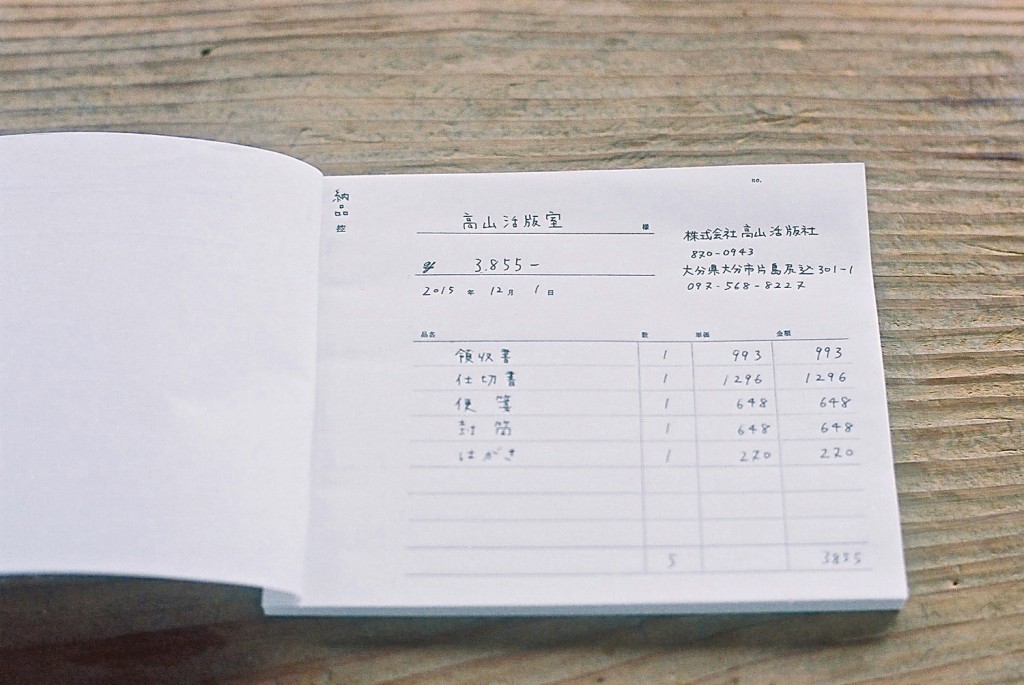 納品控
no.
高山活版室 様
株式会社 高山活版社
870-0943
大分県大分市片島尻込301-1
097-568-8227
¥ 3.855-
2015 年 12 月 1 日
品名 数 単価 金額
領収書 1 993 993
仕切書 1 1296 1296
便箋 1 648 648
封筒 1 648 648
はがき 1 270 270
5 3855